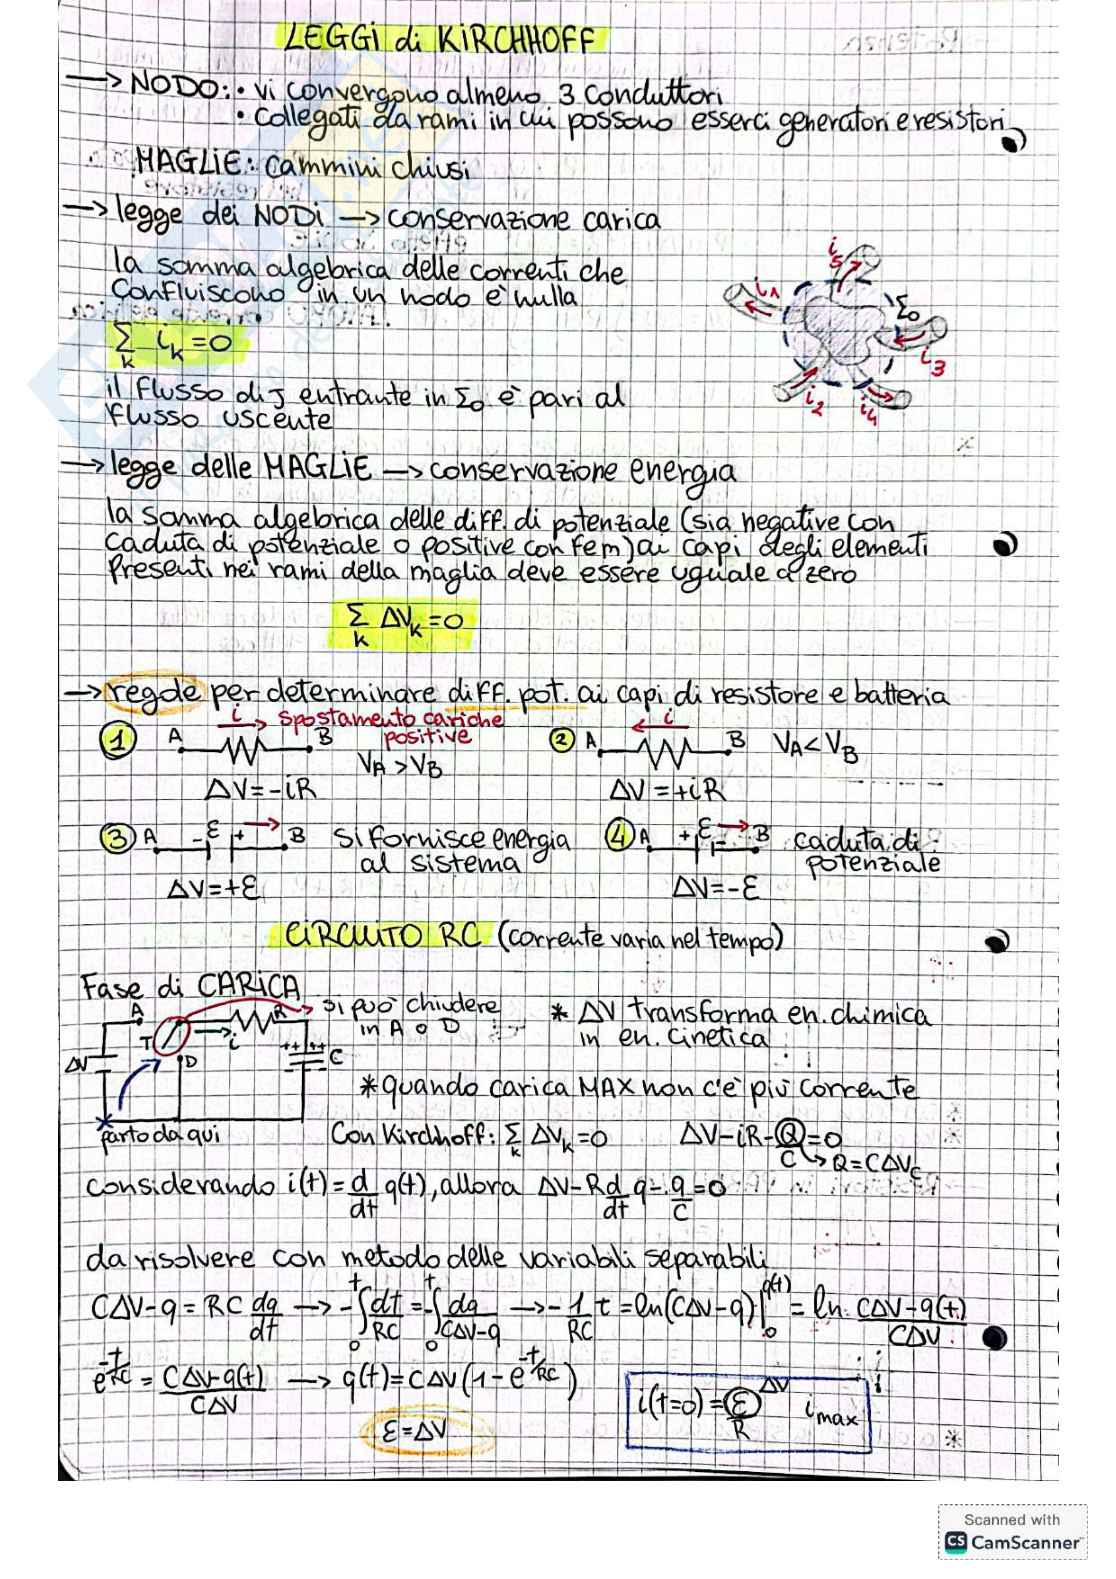 LEGGI di KIRCHHOFF
→ NODO: • vi convergono almeno 3 conduttori
• collegati da rami in cui possono esserci generatori e resistori
MAGLIE: cammini chiusi
→ legge dei NODI → conservazione carica
la somma algebrica delle correnti che
confluiscono in un nodo è nulla
Σ_k i_k = 0
i₁ i₂ i₃ i₄ i₅ Σ₀
il flusso di J entrante in Σ₀ è pari al
flusso uscente
→ legge delle MAGLIE → conservazione energia
la somma algebrica delle diff. di potenziale (sia negative con
caduta di potenziale o positive con fem) ai capi degli elementi
presenti nei rami della maglia deve essere uguale a zero
Σ_k ΔV_k = 0
→ regole per determinare diff. pot. ai capi di resistore e batteria
① A i → B spostamento cariche
positive
V_A > V_B
ΔV = -iR
② A ← i B V_A < V_B
ΔV = +iR
③ A - ε + → B si fornisce energia
al sistema
ΔV = +ε
④ A + ε - → B caduta di
potenziale
ΔV = -ε
CIRCUITO RC (corrente varia nel tempo)
Fase di CARICA
A T D i R C ΔV ++ ++
si può chiudere
in A o D
* ΔV transforma en. chimica
in en. cinetica
* quando carica MAX non c'è più corrente
parto da qui
Con Kirchhoff: Σ_k ΔV_k = 0 ΔV - iR - Q/C = 0
↳ Q = CΔV_C
considerando i(t) = d/dt q(t), allora ΔV - R d/dt q - q/C = 0
da risolvere con metodo delle variabili separabili
CΔV - q = RC dq/dt → -∫₀ᵗ dt/RC = -∫₀ᵗ dq/CΔV-q → -1/RC t = ln(CΔV-q)|₀^q(t) = ln CΔV-q(t)/CΔV
e^-t/RC = CΔV-q(t)/CΔV → q(t) = CΔV(1-e^-t/RC)
ε = ΔV
i(t=0) = ε/R ΔV i_max
Scanned with
CS CamScanner